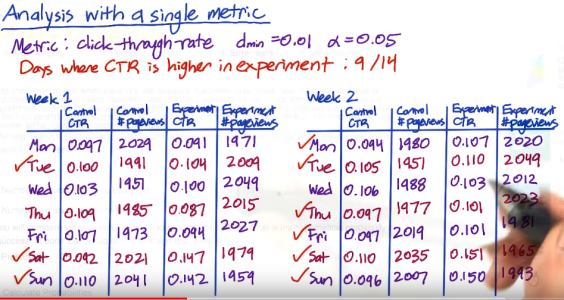 Analysis with a single metric
Metric: click-through-rate dmin = 0.01 α = 0.05
Days where CTR is higher in experiment: 9/14
Week 1
Control CTR | Control #pageviews | Experiment CTR | Experiment #pageviews
Mon 0.097 2029 0.091 1971
✓Tue 0.100 1991 0.104 2009
Wed 0.103 1951 0.100 2049
Thu 0.109 1985 0.087 2015
Fri 0.107 1973 0.094 2027
✓Sat 0.092 2021 0.147 1979
✓Sun 0.110 2041 0.142 1959
Week 2
Control CTR | Control #pageviews | Experiment CTR | Experiment #pageviews
✓Mon 0.094 1980 0.107 2020
✓Tue 0.105 1951 0.110 2049
Wed 0.106 1988 0.103 2012
✓Thu 0.097 1977 0.101 2023
✓Fri 0.097 2019 0.101 1981
✓Sat 0.110 2035 0.151 1965
✓Sun 0.096 2007 0.150 1993